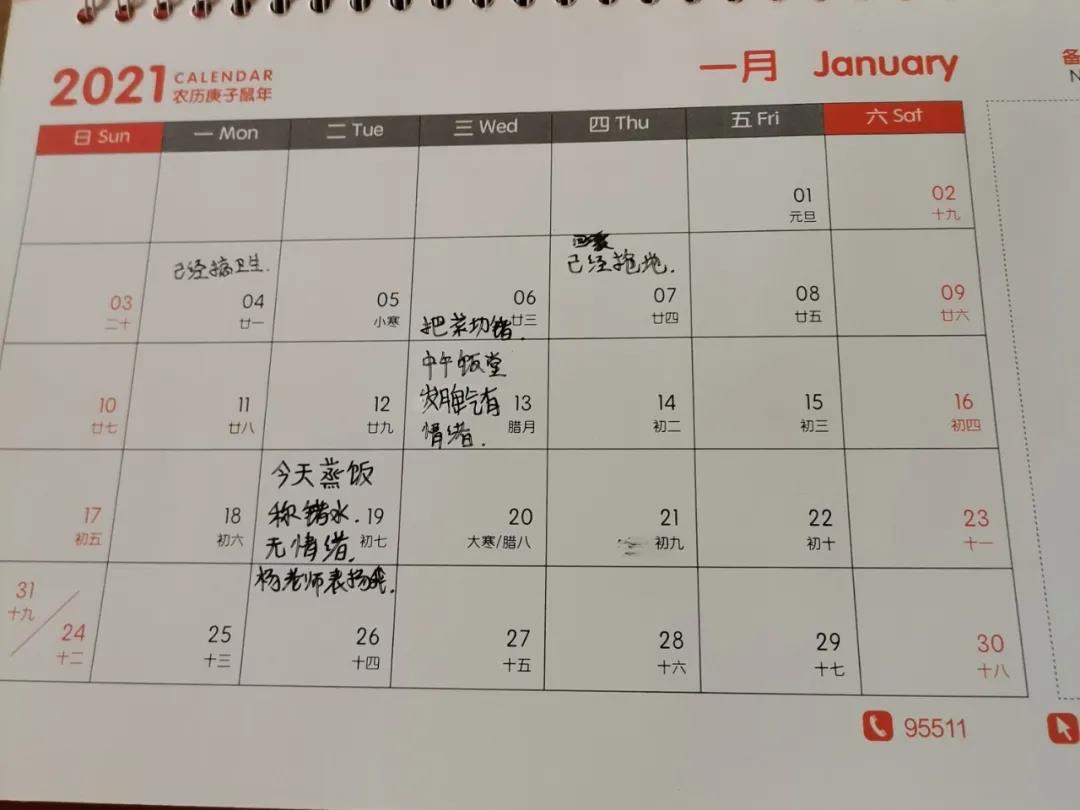 2021 CALENDAR
农历庚子鼠年
一月 January
日 Sun 一 Mon 二 Tue 三 Wed 四 Thu 五 Fri 六 Sat
01 02
元旦 十九
已经搞卫生.
已经拖地.
03 04 05 06 07 08 09
二十 廿一 小寒 廿三 廿四 廿五 廿六
把菜切错.
中午饭堂
发脾气有
情绪.
10 11 12 13 14 15 16
廿七 廿八 廿九 腊月 初二 初三 初四
今天蒸饭
称错水.
无情绪.
17 18 19 20 21 22 23
初五 初六 初七 大寒/腊八 初九 初十 十一
杨老师表扬我.
31
十九
24 25 26 27 28 29 30
十二 十三 十四 十五 十六 十七 十八
95511